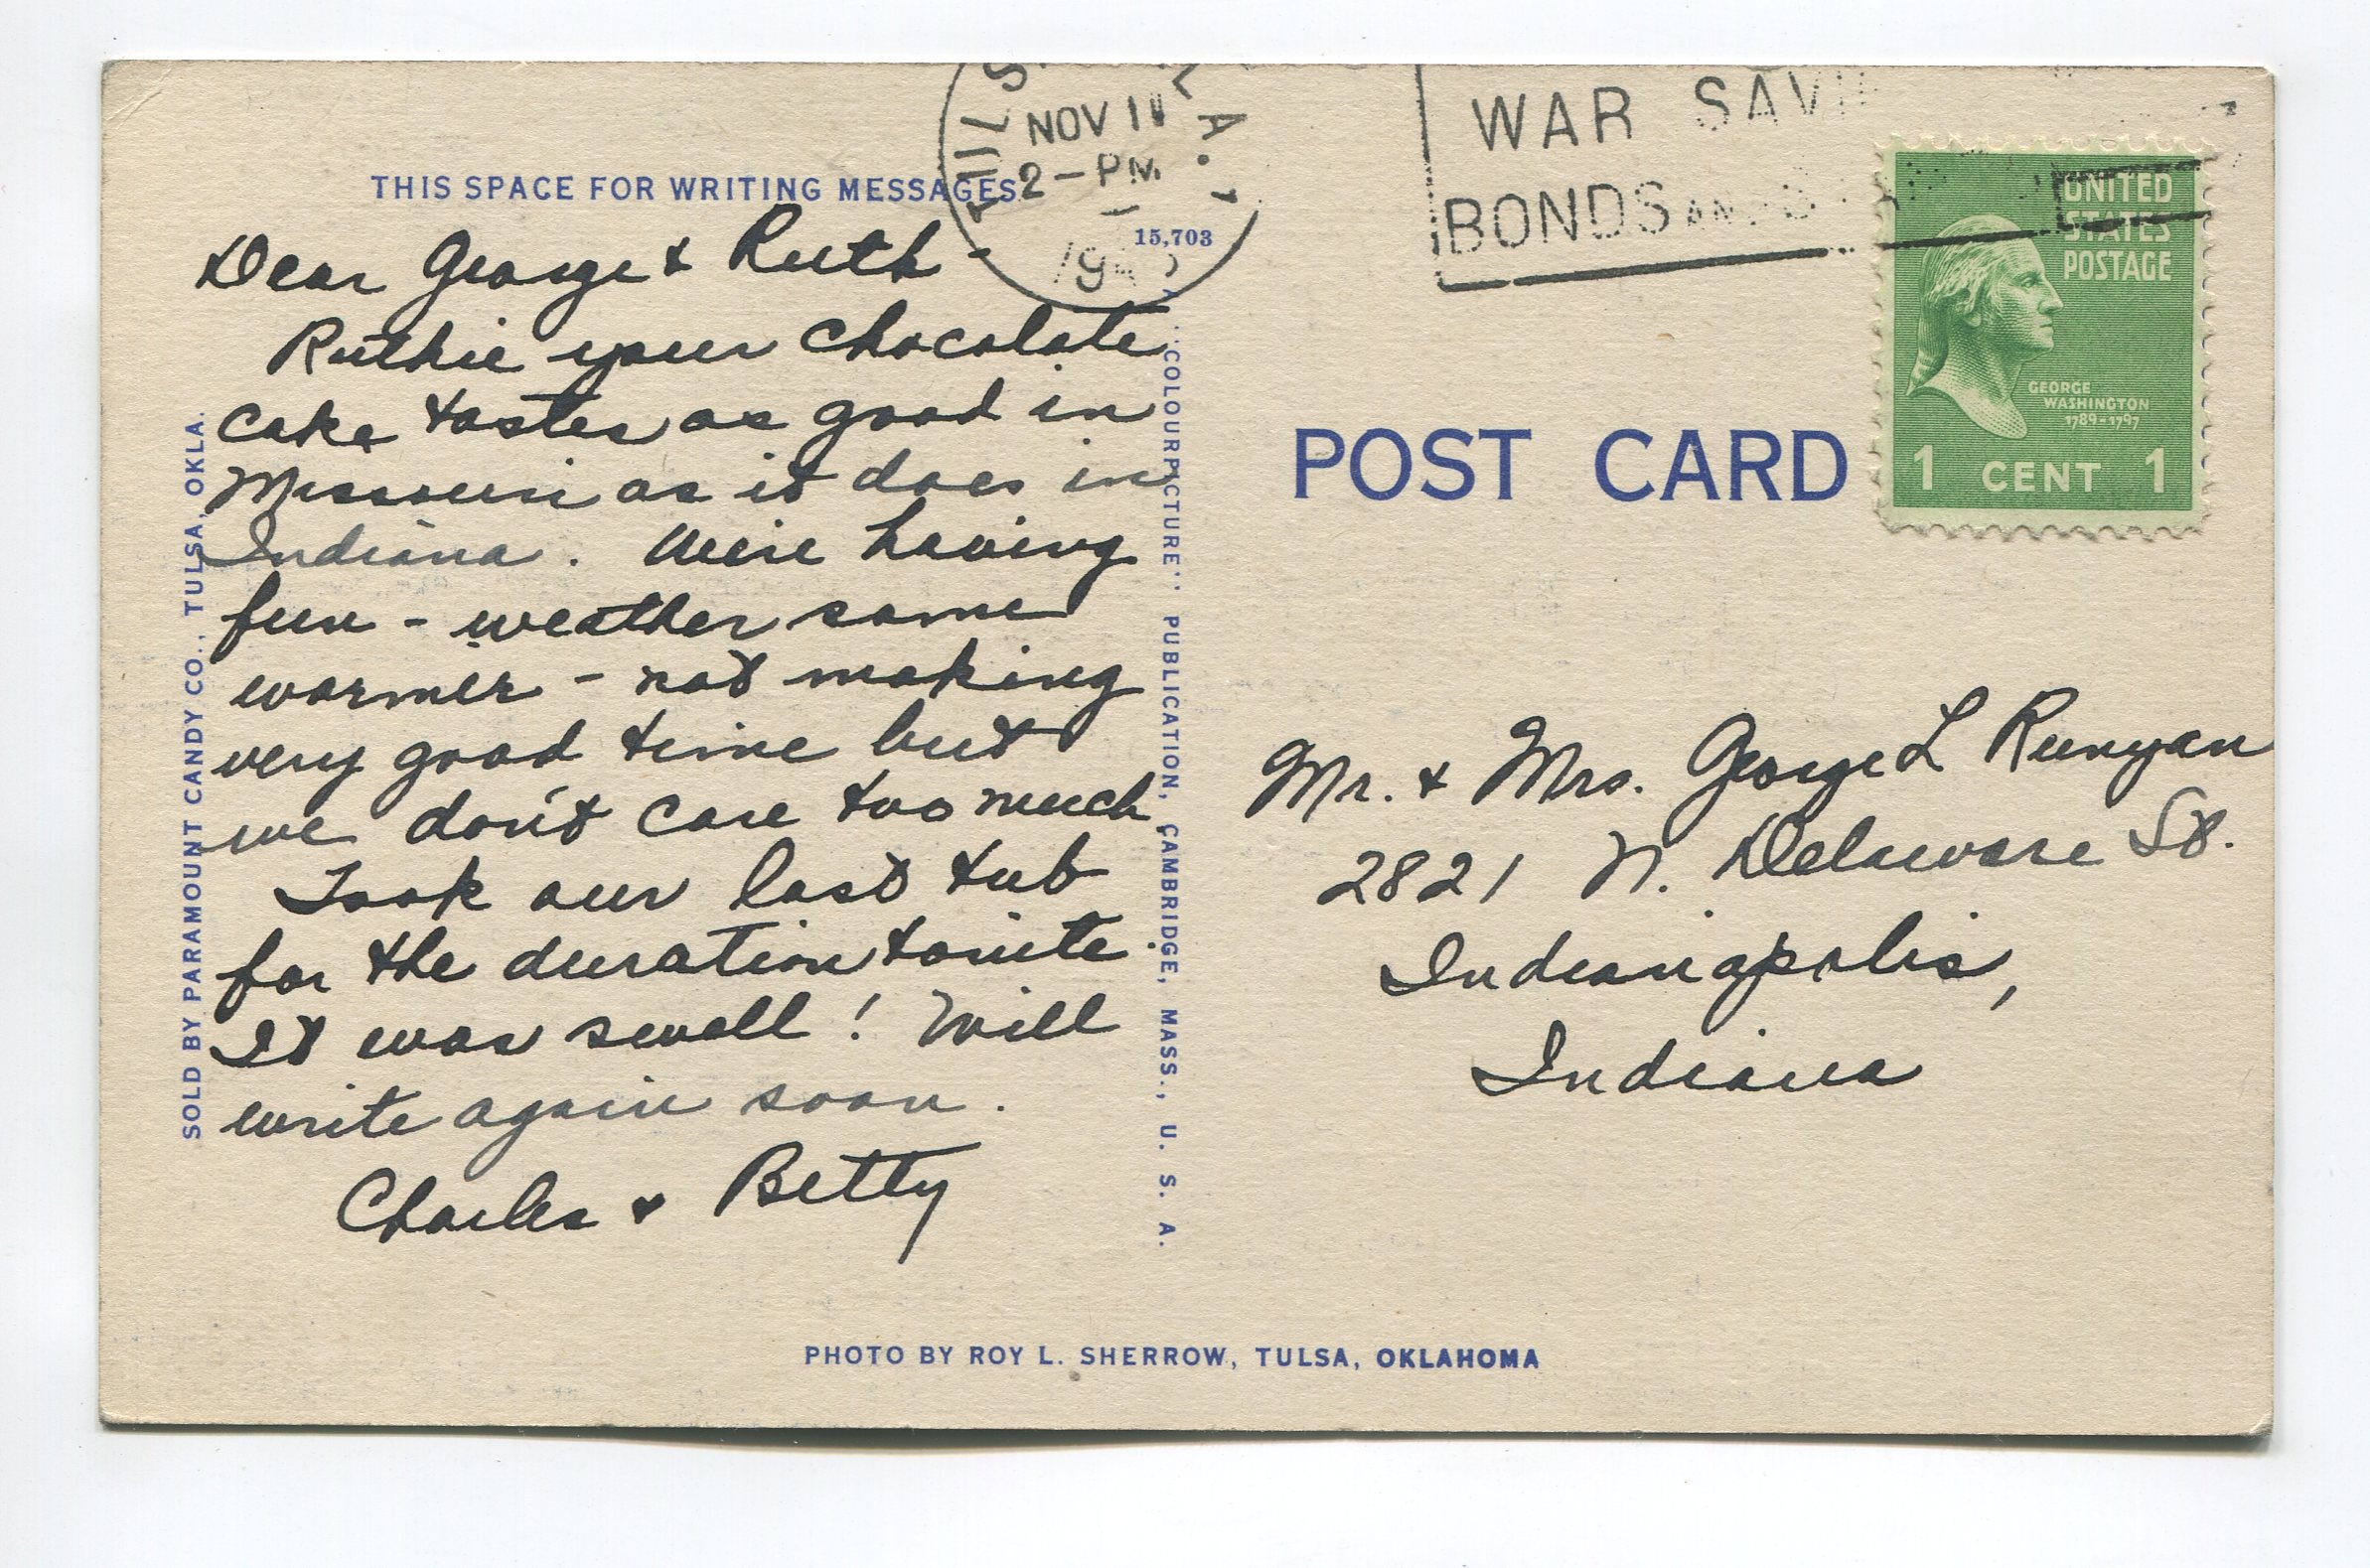 THIS SPACE FOR WRITING MESSAGES
Dear George & Ruth -
Ruthie your chocolate
cake tastes as good in
Missouri as it does in
Indiana. We're having
fun - weather some
warmer - not making
very good time but
we don't care too much
Took our last tub
for the duration tonite.
It was swell! Will
write again soon.
Charles & Betty
SOLD BY PARAMOUNT CANDY CO., TULSA, OKLA.
NOV 11
2-PM
15,703
"COLOURPICTURE" PUBLICATION, CAMBRIDGE, MASS., U. S. A.
WAR
BONDS AND
UNITED
STATES
POSTAGE
GEORGE
WASHINGTON
1789-1797
1 CENT 1
POST CARD
Mr. & Mrs. George L Runyan
2821 N. Delaware St.
Indianapolis,
Indiana
PHOTO BY ROY L. SHERROW, TULSA, OKLAHOMA